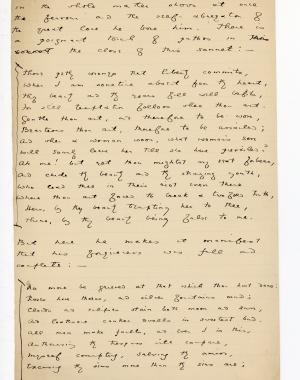 in the whole matter shows at once
the fervour and the self-abnegation of
the great love he bore him. There is
a poignant touch of pathos in
the close of this sonnet:—
Those pretty wrongs that liberty commits,
When I am sometime absent from thy heart,
Thy beauty and thy years full well befits,
For still temptation follows where thou art.
Gentle thou art, and therefore to be won,
Beauteous thou art, therefore to be assailed;
And when a woman woos, what woman's son
Will sourly leave her till she have prevailed?
Ah me! but yet thou mightst my seat forbear,
And chide thy beauty and thy straying youth,
Who lead thee in their riot even there
Where thou art forced to break a twofold truth,
Hers, by thy beauty tempting her to thee,
Thine, by thy beauty being false to me.
But here he makes it manifest
that his forgiveness was full and
complete:—
No more be grieved at that which thou hast done:
Roses have thorns, and silver fountains mud;
Clouds and eclipses stain both moon and sun,
And loathsome canker dwells in sweetest bud.
All men make faults, and even I in this,
Authorizing thy trespass with compare,
Myself corrupting, salving thy amiss,
Excusing thy sins more than thy sins are;